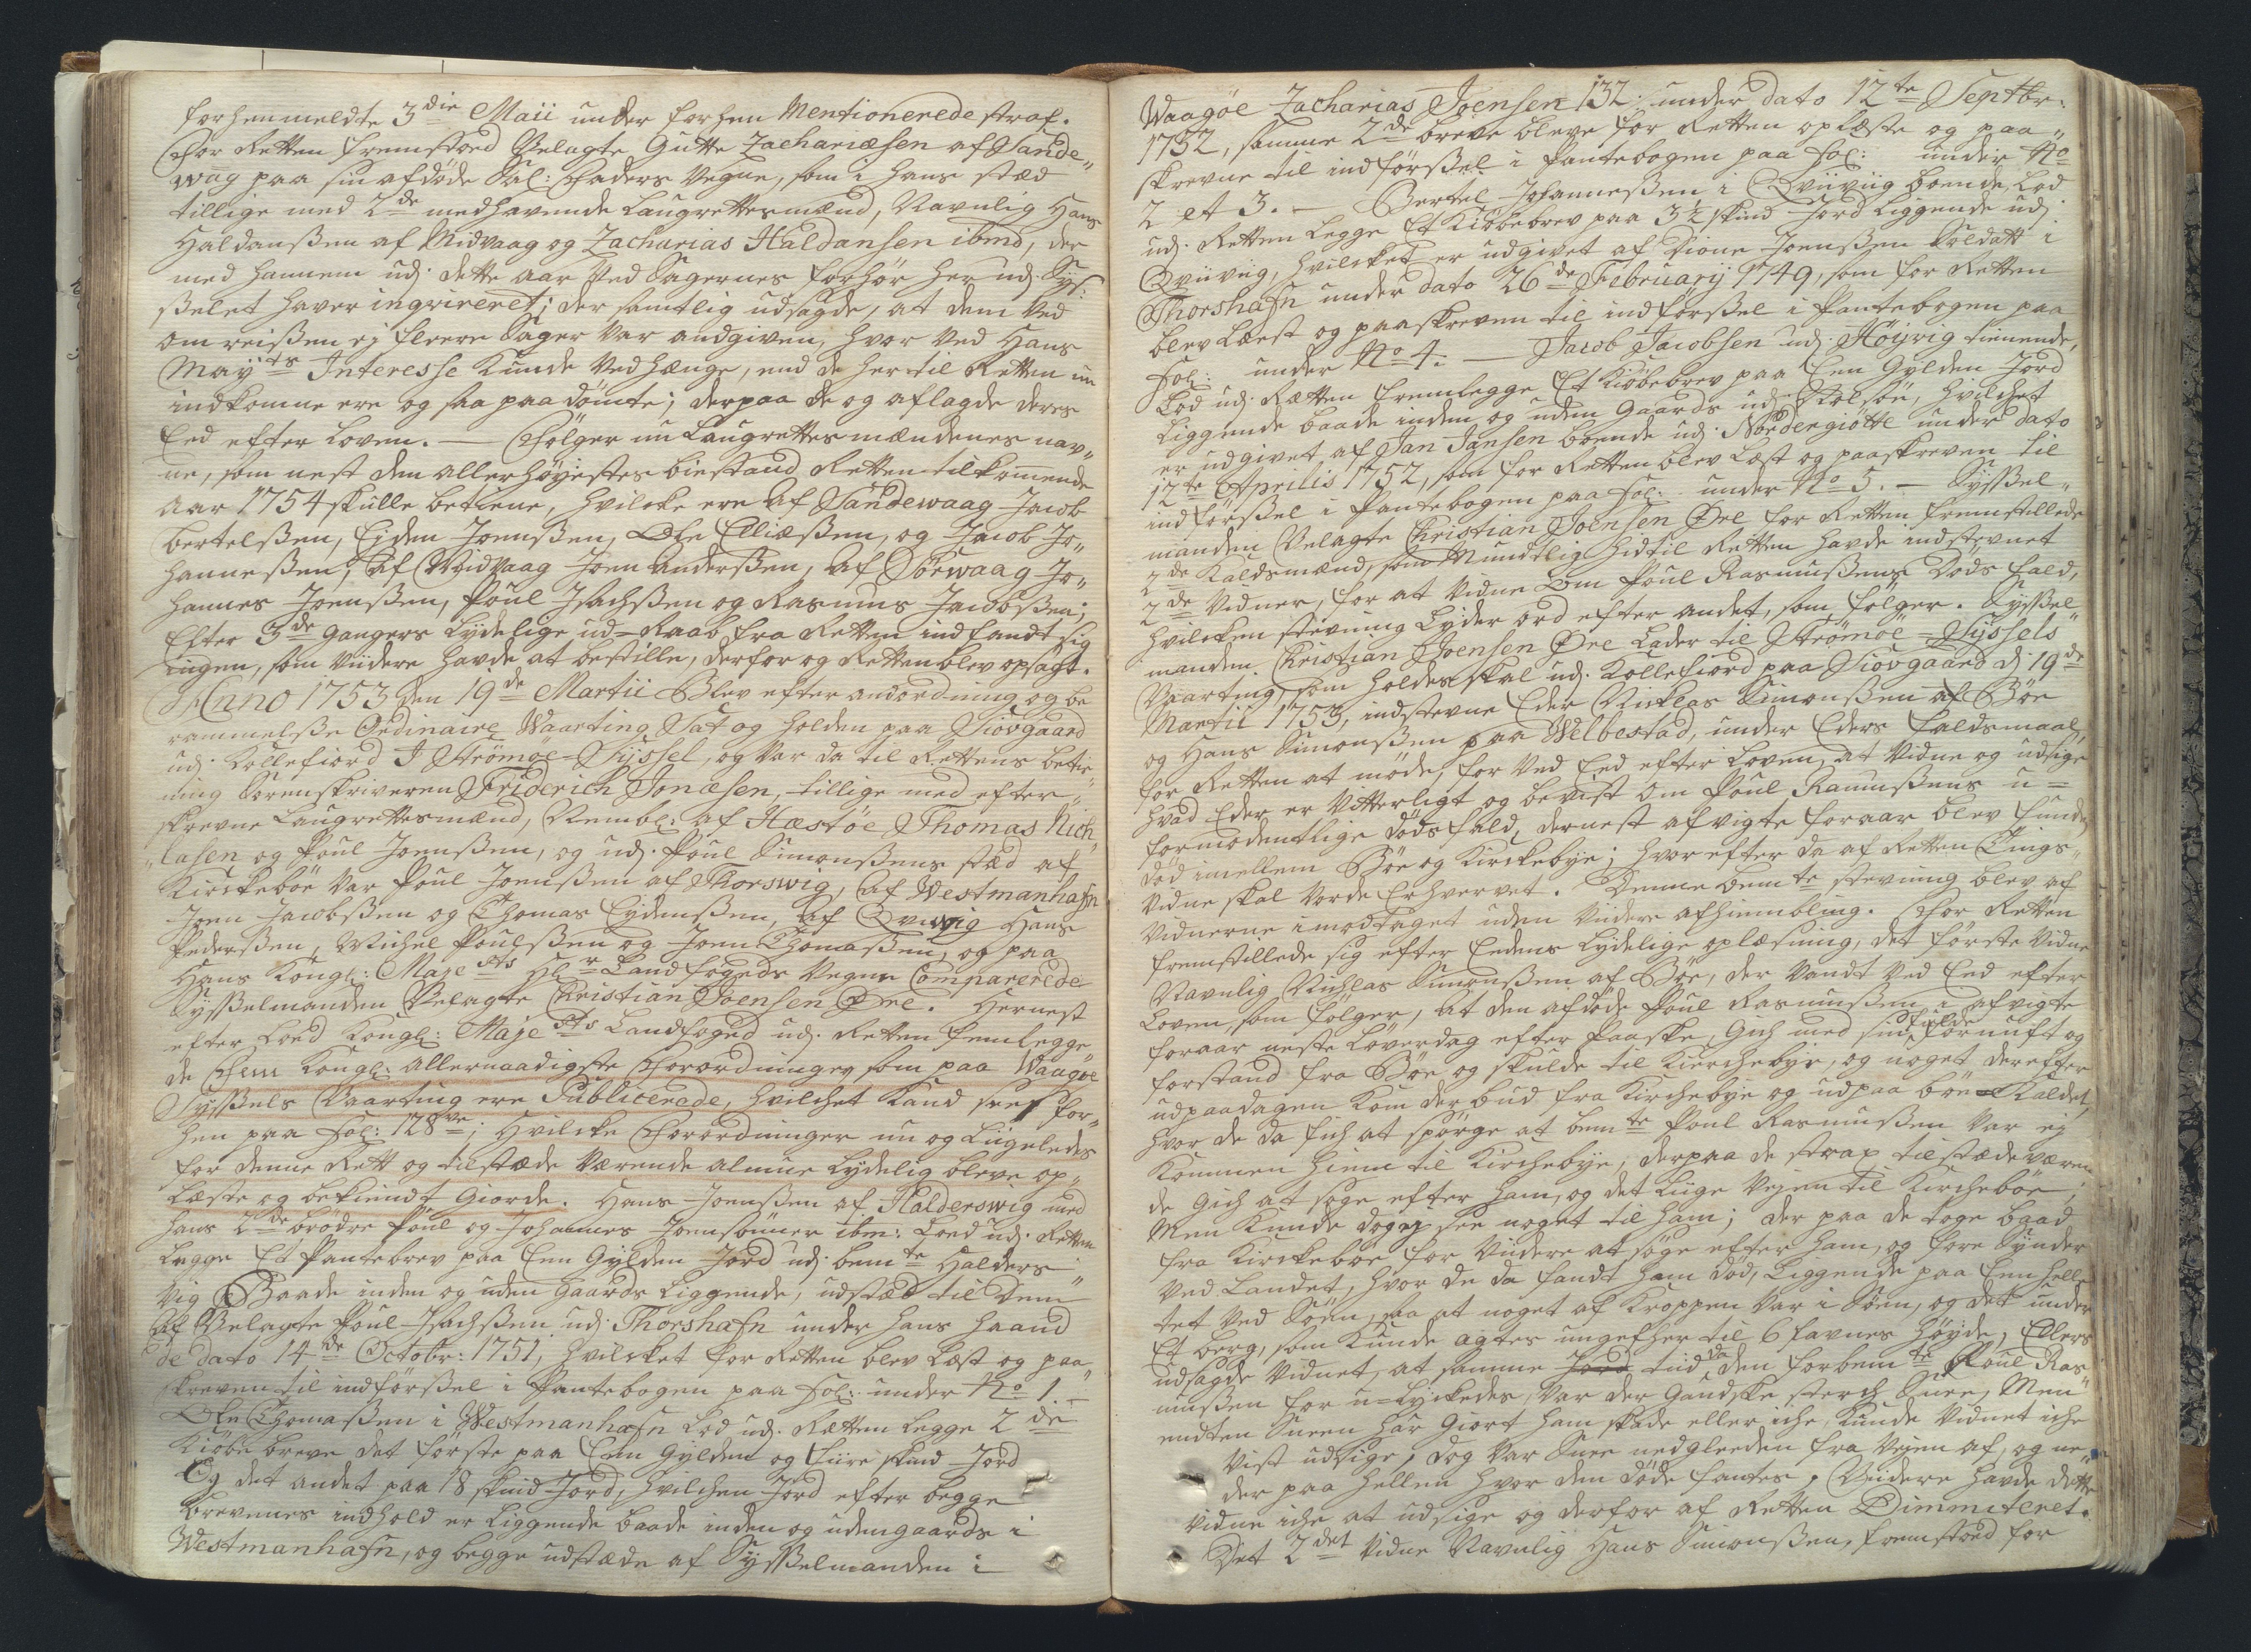 forhenmeldte 3die Maii under forhen Mentionerede straf.
For Retten fremstoed Velagte Gutte Zachariæsen af Sande„
wåg paa sin afdöde Sal: Faders Vegne, som i hans stæd
tillige med 2de medhavende Laugrettesmænd, Navnlig Hans
Haldanßen af Midvaag og Zacharias Haldansen ibmd, der
med hannem udj dette aar ved Sagernes forhör her udj Sys„
ßelet haver ingvireret; der samtlig udsagde, at dem ved
om reißen ej fleere Sager var andgiven, hvor ved Hans
Mayts Interesse kunde vedhænge, end de her til Retten nu
indkomne ere og saa paadömte; derpaa de og aflagde deres
Eed efter Loven. — Fölger nu Laugrettesmændenes nav„
ne, som nest den allerhöyestes biestand Retten tilkommende
aar 1754 skulle betiene, hvilcke ere af Sandewaag Jacob
Bertelßen, Eyden Joenßen, Ole Elliæßen, og Jacob Jo„
hanneßen, af Midvaag Joen Anderßen, af Sörwaag Jo„
hannes Joenßen, Poul Isachßen og Rasmus Jacobßen;
Efter 3de ganger Lydelige ud-Raab fra Retten indfandt sig
ingen, som viidere havde at bestille, derfor og Retten blev opsagt.
Anno 1753 den 19de Martii Blev efter andordning og be
rammelße Ordinaire Waarting Sat og holden paa Siovgaard
udj Kollefiord I Strömoe-Sÿssel, og var da til Rettens betie„
ning Sorenskriveren Friderich Jonæsen, tillige med efter„
skrevne Laugrettesmænd, Nembl: af Hæstöe Thomas Nich„
„lasen og Poul Joenßen, og udj Poul Simonßens stæd af
Kirckeböe var Poul Joenßen af Thorswig, af Westmanhafn
Joen Jacobßen og Thomas Eydenßen, af Qviwig Hans
Pederßen, Michel Poulßen og Joen Thomaßen, og paa
Hans Kongl: Majests Hr Landfogeds Vegne Comparerede
Sysselmanden Velagte Christian Joensen Öre. Hernest
efter Loed Kongl: Majests Landfoged udj Retten fremlegge
de Fem Kongl: allernaadigste Forordninger som paa Waagöe
Sysßels Waarting ere Publicerede, hvilchet kand sees for„
hen paa Fol: 128ve; Hvilcke Forordninger nu og Liigeledes
for denne Rett og tilstæde Værende almue Lydelig bleve op„
Læste og bekiendt giorde. Hans Joenßen af Halderswig med
hans 2de brödre Poul og Johannes Joensönner ibm: Loed udj Retten
Legge Et Pantebrev paa Een Gylden Jord udj bemte Halders„
vig Baade inden og uden Gaards Liggende, udstæd til dem
af Velagte Poul Isachßen udj Thorshafn under hans haand
de dato 14de Octobr: 1751, hvilcket for Retten blev Læst og paa„
skreven til indförßel i Pantebogen paa Fol: under No 1. —
Ole Thomaßen i Westmanhafn Lod udj Rætten Legge 2de
Kiöbe breve det förste paa Een Gylden og Fiire skind Jord
Og det andet paa 18 skind Jord, hvilchen Jord efter begge
brevenes indhold er Liggende baade inden og udengaards i
Westmanhafn, og begge udstæde af Sysßelmanden i
Waagöe Zacharias Joensen 132. under dato 12te Septbr:
1752, samme 2de breve bleve for Retten oplæste og paa„
skrevne til indförßel i Pantebogen paa Fol: under No
2 et 3. — Bertel Johanneßen i Qviiviig boende, Lod
udj Retten Legge Et Kiöbebrev paa 3½ skind Jord Liggende udj
Qviiviig, hvilcket er udgivet af Dione Joenßen Soldatt i
Thorshafn under dato 26de Februarÿ 1749, som for Retten
blev Læst og paaskreven til indförßel i Pantebogen paa
Fol: under No 4. — Jacob Jacobsen udj Höÿvig tienende,
Lod udj Rætten fremlegge Et Kiöbebrev paa Een Gylden Jord
Liggende baade inden og uden Gaards udj Kolsöe, hvilchet
er udgivet af Jan Jansen boende udj Nordergiötte under dato
12te Aprilis 1752, som for Retten blev Læst og paaskreven til
indförßel i Pantebogen paa Fol: under No 5. — Sysßel„
manden Velagte Christian Joensen Öre for Retten fremstillede
2de Kaldsmænd, som Mundtlig hidtil Retten havde indstevnet
2de Vidner, for at vidne om Poul Rasmußens döds fald,
hvilcken stevning Lyder ord efter andet, som fölger. Sysßel„
manden Christian Joensen Öre Lader til Strömöe-Sÿssels
Vaarting, som holdes skal udj Kollefiord paa Siövgaard d: 19de
Martii 1753, indstevne Eder Nicklas Simonßen af Böe
og Hans Simonßen paa Welbestad, under Eders faldsmaal,
for Retten at möde, for ved Eed efter Loven, at vidne og udsige
hvad Eder er vitterligt og bevist om Poul Rasmußens u=
formodentlige dödsfald, dernest afvigte foraar blev funden
död imellem Böe og Kirckebye; hvorefter da af Retten Tings„
vidne skal vorde Erhvervet. Denne bemte stevning blev af
Vidnerne imodtaget uden viidere afhiembling. For Retten
fremstillede sig efter Eedens Lydelige oplæsning, det förste Vidne
Navnlig Nichlas Simonßen af Böe, der vandt ved Eed efter
Loven, som fölger, at den afdöde Poul Rasmußen i afvigte
foraar neste Löverdag efter Paaske, Gich med sin fulde fornuft og
forstand fra Böe og skulde til Kierchebye, og noget derefter
udpaadagen kom der bud fra Kirchebye og udpaa böe Kaldet,
hvor de da fich at spörge at bemte Poul Rasmußen var ej
kommen hiem til Kirchebye; derpaa de strax tilstædeværen
de gich at söge efter ham, og det Liige Vejen til Kircheböe;
Men kunde dog ej see noget til ham; der paa de toge baad
fra Kirckeböe for viidere at söge efter ham, og fore Synder
ved Landet, hvor de da fandt ham död, Liggende paa Een helle
tet ved Söen, saa at noget af Kroppen var i Söen, og det under
Et berg, som kunde agtes ungefher til 6 favnes höyde, Ellers
udsagde Vidnet, at samme tiid da den forbemte Poul Ras„
mußen for u-Lyckedes, var der Gandske sterch Snee, Men
endten Sneen har giort ham skade eller iche, kunde Vidnet iche
vist udsige, dog var Snee nedgleeden fra Vejen af, og ne„
der paa hellen hvor den döde fantes, Viidere havde dette
Vidne iche at udsige og derfor af Retten Dimmiteret.
Det 2det Vidne Navnlig Hans Simonßen, fremstoed for